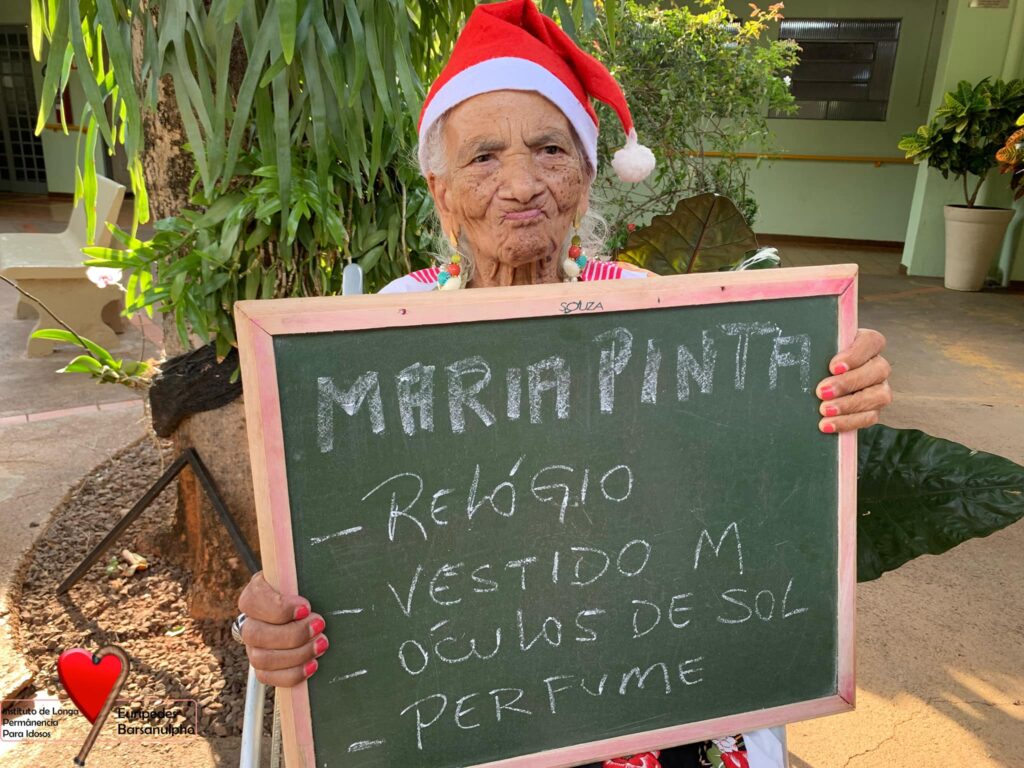 SOUZA
MARIA PINTA
- RELÓGIO
- VESTIDO M
- ÓCULOS DE SOL
- PERFUME
Instituto de Longa
Permânencia
Para Idosos
Eurípedes
Barsanulpho